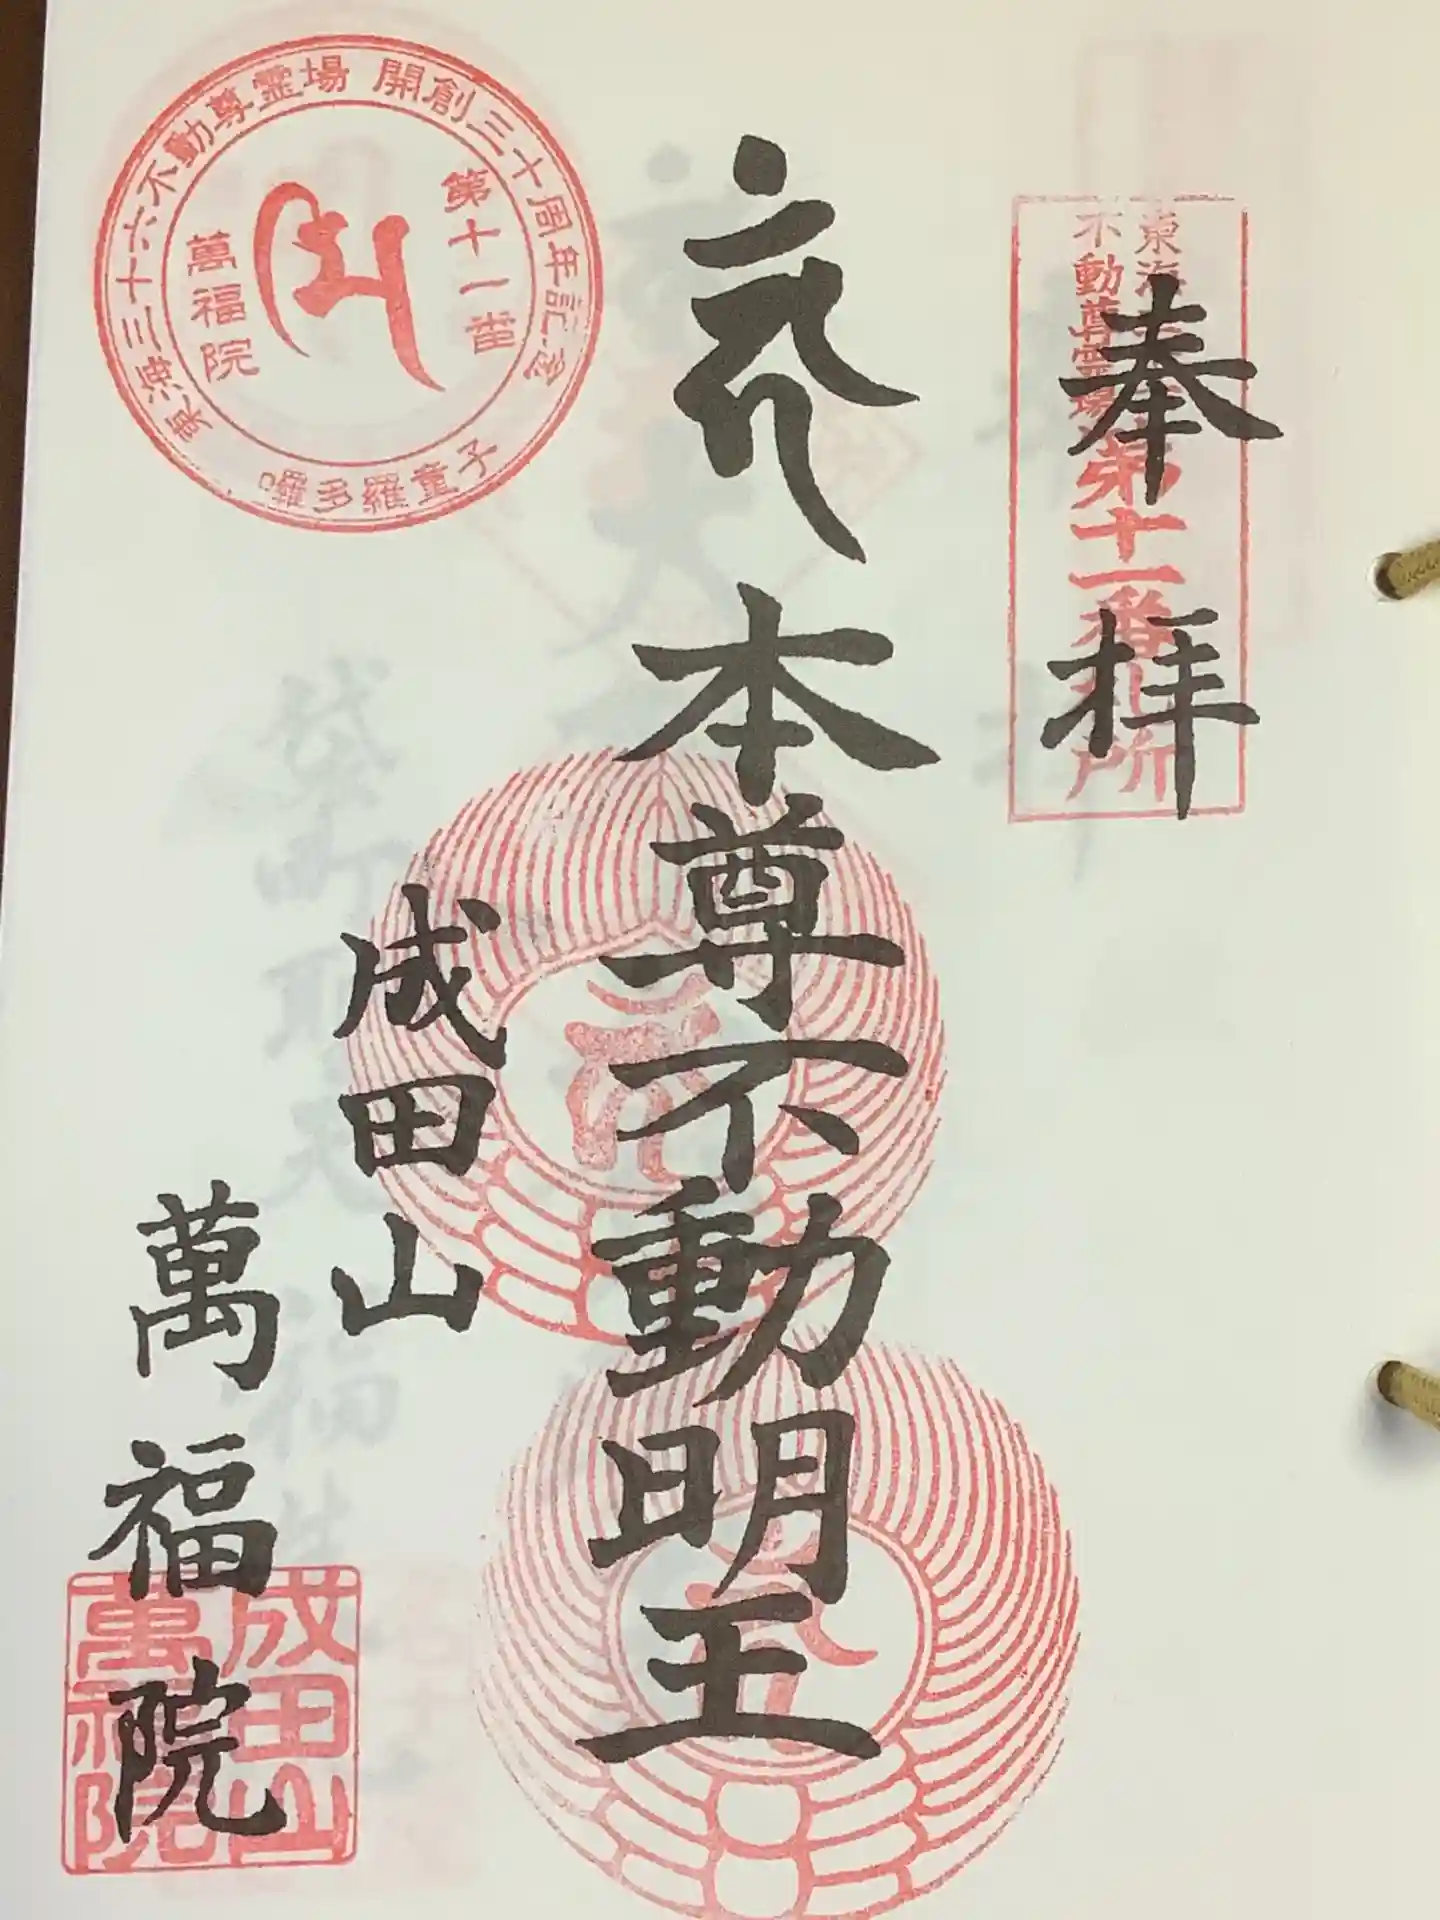 奉拝
東海
不動尊霊場
第十一番札所
本尊不動明王
成田山
萬福院
東海三十六不動尊霊場 開創三十周年記念
第十一番
萬福院
囉多羅童子
成田山
萬福院